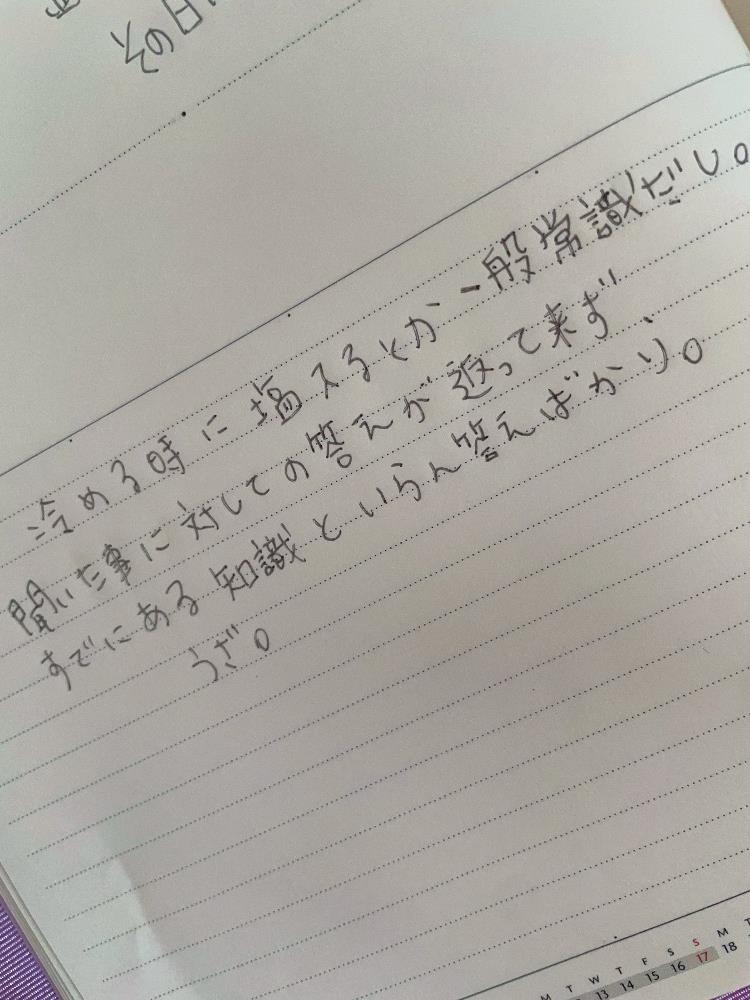 その日
冷める時に塩入るとか一般常識だし。
聞いた事に対しての答えが返って来ず、
すでにある知識といらん答えばかり。
うざ。
M T W T F S S M T
13 14 15 16 17 18